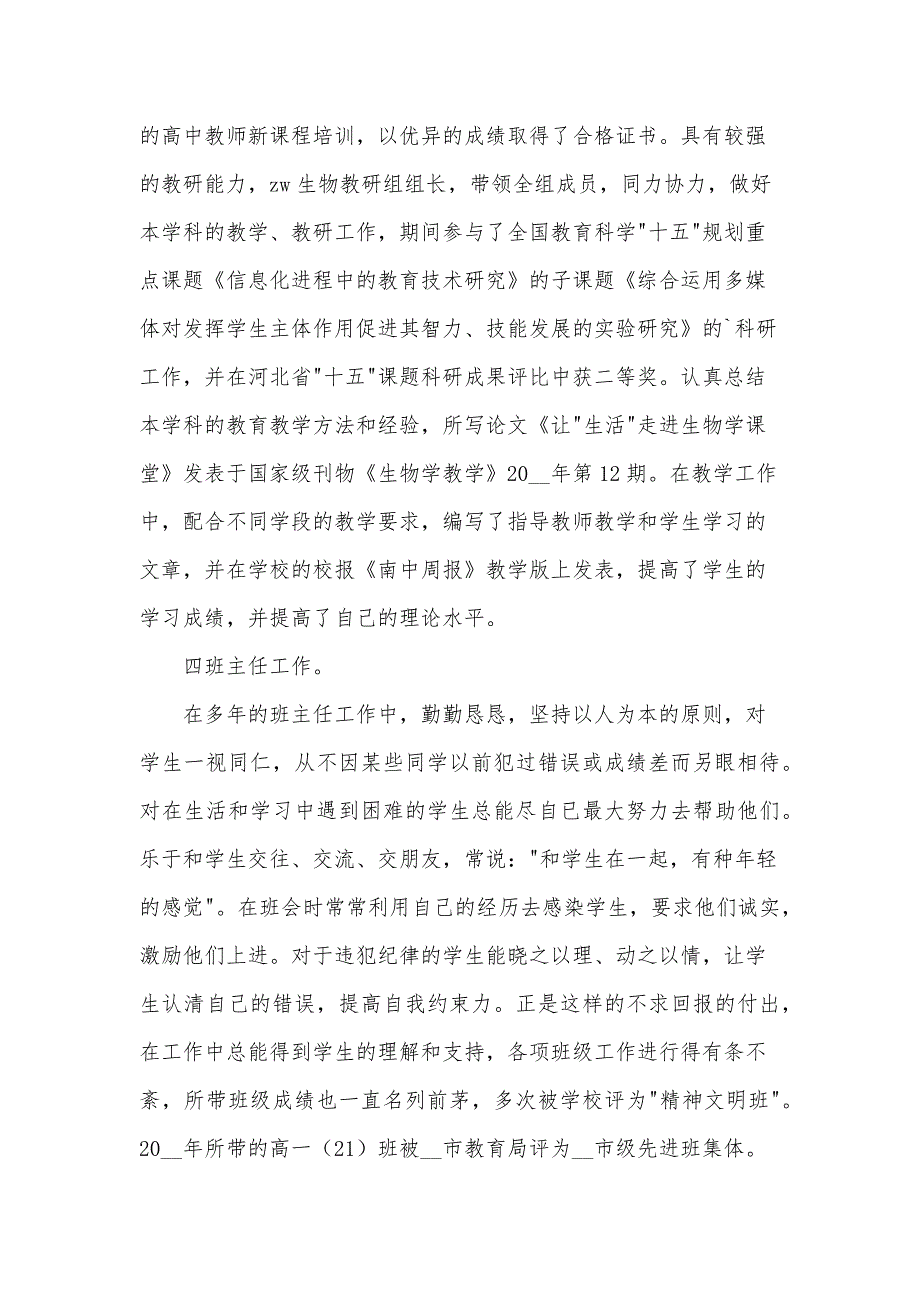 的高中教师新课程培训，以优异的成绩取得了合格证书。具有较强
的教研能力，zw 生物教研组组长，带领全组成员，同力协力，做好
本学科的教学、教研工作，期间参与了全国教育科学"十五"规划重
点课题《信息化进程中的教育技术研究》的子课题《综合运用多媒
体对发挥学生主体作用促进其智力、技能发展的实验研究》的`科研
工作，并在河北省"十五"课题科研成果评比中获二等奖。认真总结
本学科的教育教学方法和经验，所写论文《让"生活"走进生物学课
堂》发表于国家级刊物《生物学教学》20__年第 12 期。在教学工作
中，配合不同学段的教学要求，编写了指导教师教学和学生学习的
文章，并在学校的校报《南中周报》教学版上发表，提高了学生的
学习成绩，并提高了自己的理论水平。
四班主任工作。
在多年的班主任工作中，勤勤恳恳，坚持以人为本的原则，对
学生一视同仁，从不因某些同学以前犯过错误或成绩差而另眼相待。
对在生活和学习中遇到困难的学生总能尽自已最大努力去帮助他们。
乐于和学生交往、交流、交朋友，常说："和学生在一起，有种年轻
的感觉"。在班会时常常利用自己的经历去感染学生，要求他们诚实，
激励他们上进。对于违犯纪律的学生能晓之以理、动之以情，让学
生认清自己的错误，提高自我约束力。正是这样的不求回报的付出，
在工作中总能得到学生的理解和支持，各项班级工作进行得有条不
紊，所带班级成绩也一直名列前茅，多次被学校评为"精神文明班"。
20__年所带的高一（21）班被__市教育局评为__市级先进班集体。